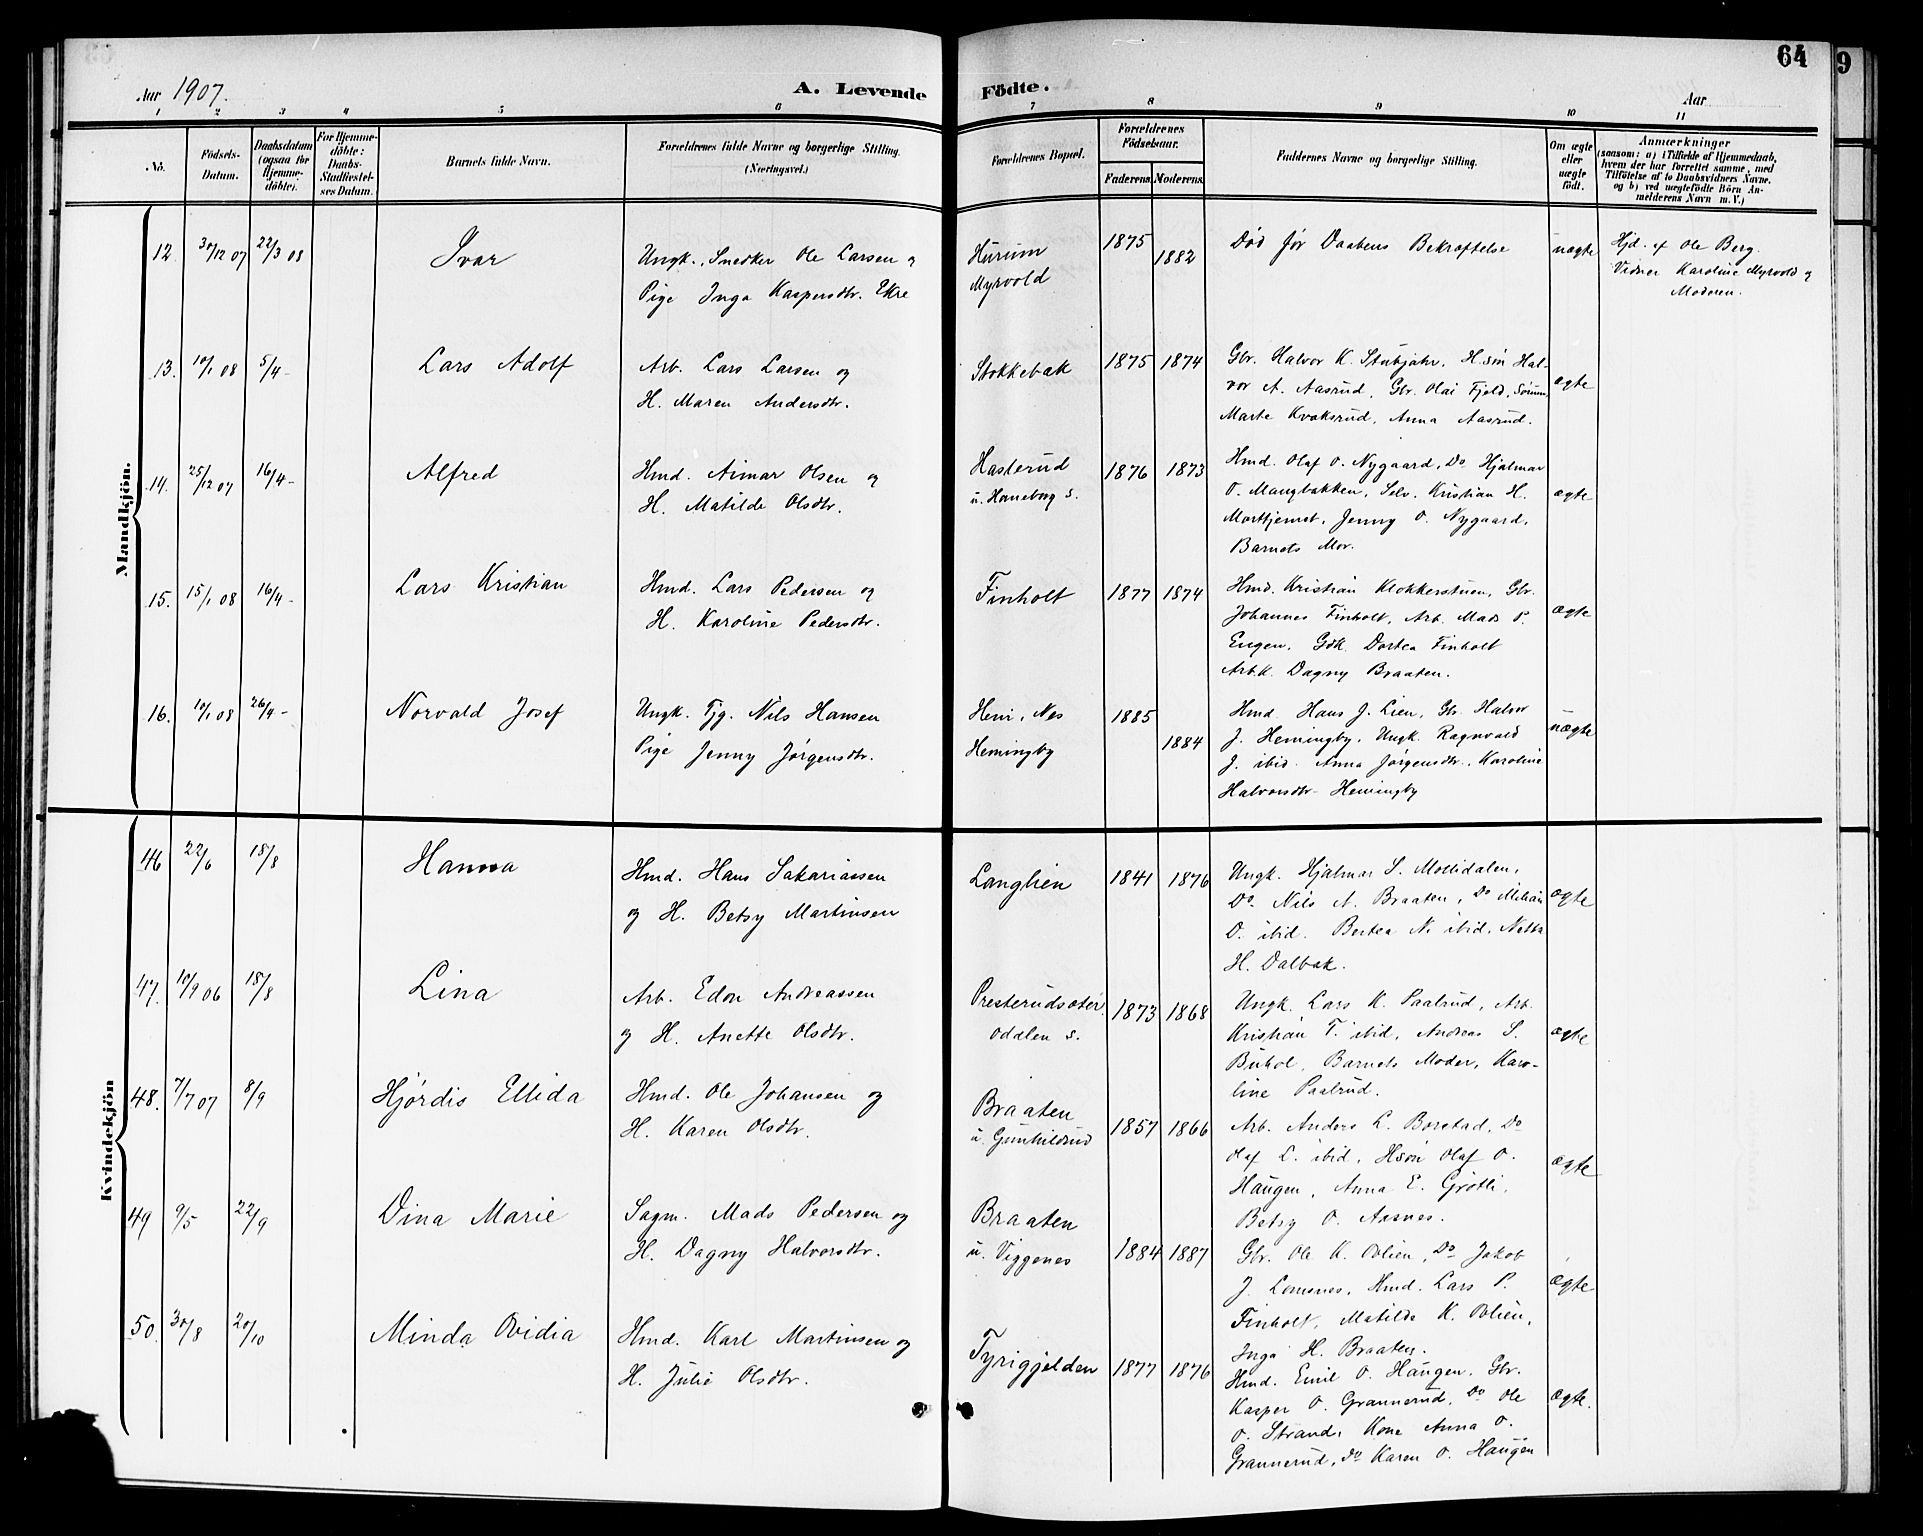 64
9
Aar 1907.
A. Levende Födte.
Aar
1 2 3 4 5 6 7 8 9 10 11
No.
Födsels-Datum.
Daabsdatum (ogsaa for Hjemme-döbte).
For Hjemme-döbte: Daabs-Stadfæstel-ses Datum.
Barnets fulde Navn.
Forældrenes fulde Navne og borgerlige Stilling. (Næringsvei.)
Forældrenes Bopæl.
Forældrenes Födselsaar.
Faderens Moderens
Faddernes Navne og borgerlige Stilling.
Om ægte eller uægte födt.
Anmærkninger
(saasom: a) i Tilfælde af Hjemmedaab,
hvem der har forrettet samme, med
Tilföielse af to Daabsvidners Navne,
og b) ved uægtefödte Börn An-
melderens Navn m. V.)
Mandkjön.
12. 30/12 07 22/3 08 Ivar
Ungk. Snedker Ole Larsen og
Pige Inga Kaspersdtr. Ekre
Hurum
Myrvold
1875 1882
Död för Daabens Bekræftelse
uægte
Hjd. af Ole Berg.
Vidner Karoline Myrvold og
Moderen.
13. 10/1 08 5/4 - Lars Adolf
Arb. Lars Larsen og
H. Maren Andersdtr.
Stokkebæk
1875 1874
Gbr. Halvor K. Stubjahr, H.sön Hal-
vor A. Aasrud, Gbr. Olai Fjeld, Sörum,
Marte Kvaksrud, Anna Aasrud.
ægte
14. 25/12 07 16/4 - Alfred
Hmd. Aimar Olsen og
H. Matilde Olsdtr.
Hasterud
u. Haneborg s.
1876 1873
Hmd. Olaf O. Nygaard, Do Hjalmar
O. Mangbakken, Selv. Kristian H.
Morttjernet, Jenny O. Nygaard,
Barnets Mor.
ægte
15. 15/1 08 16/4 - Lars Kristian
Hmd. Lars Pedersen og
H. Karoline Pedersdtr.
Finholt
1877 1874
Hmd. Kristian Klokkerstuen, Gbr.
Johannes Finholt, Arb. Mads P.
Engen, Gdk. Dortea Finholt
Arbk. Dagny Braaten.
ægte
16. 10/1 08 26/4 - Norvald Josef
Ungk. Tjg. Nils Hansen
Pige Jenny Jørgensdtr.
Heni, Nes
Hemingby
1885 1884
Hmd. Hans J. Lien, Gbr. Halvor
J. Hemingby, Ungk. Ragnvald
J. ibid. Anna Jørgensdtr., Karoline
Halvorsdtr. Hemingby
uægte
Kvindekjön
46 22/6 18/8 Hanna
Hmd. Hans Sakariassen
og H. Betsy Martinsen
Langlien
1841 1876
Ungk. Hjalmar S. Mollidalen,
Do. Nils A. Braaten, Do Milian
O. ibid. Bertea N. ibid. Netta
H. Dalbak.
ægte
47. 10/9 06 18/8 Lina
Arb. Edon Andreassen
og H. Anette Olsdtr.
Presterudsæter
Oddlen s.
1873 1868
Ungk. Lars K. Paalrud, Arb.
Kristian T. ibid, Andreas S.
Buhol, Barnets Moder, Karo-
line Paalrud.
ægte
48. 7/7 07 8/9 Hjørdis Ellida
Hmd. Ole Johansen og
H. Karen Olsdtr.
Braaten
u. Gunhildrud
1857 1866
Arb. Anders L. Borstad, Do
Olaf L. ibid, Hsön Olaf O.
Haugen, Anna E. Grötli,
Betsy O. Aasnes.
ægte
49 9/5 22/9 Dina Marie
Sagm. Mads Pedersen og
H. Dagny Halvorsdtr.
Braaten
u. Viggenes
1884 1887
Gbr. Ole K. Ovlien, Do Jakob
J. Lomsnes, Hmd. Lars P.
Finholt, Matilda K. Ovlien,
Inga H. Braaten.
ægte
50. 30/8 20/10 Minda Ovidia
Hmd. Karl Martinsen og
H. Julie Olsdtr.
Tyrigjelden
1877 1876
Hmd. Emil O. Haugen, Gbr.
Kasper O. Grannerud, Do Ole
O. Strand, Kone Anna O.
Grannerud, Do Karen O. Haugen
ægte.